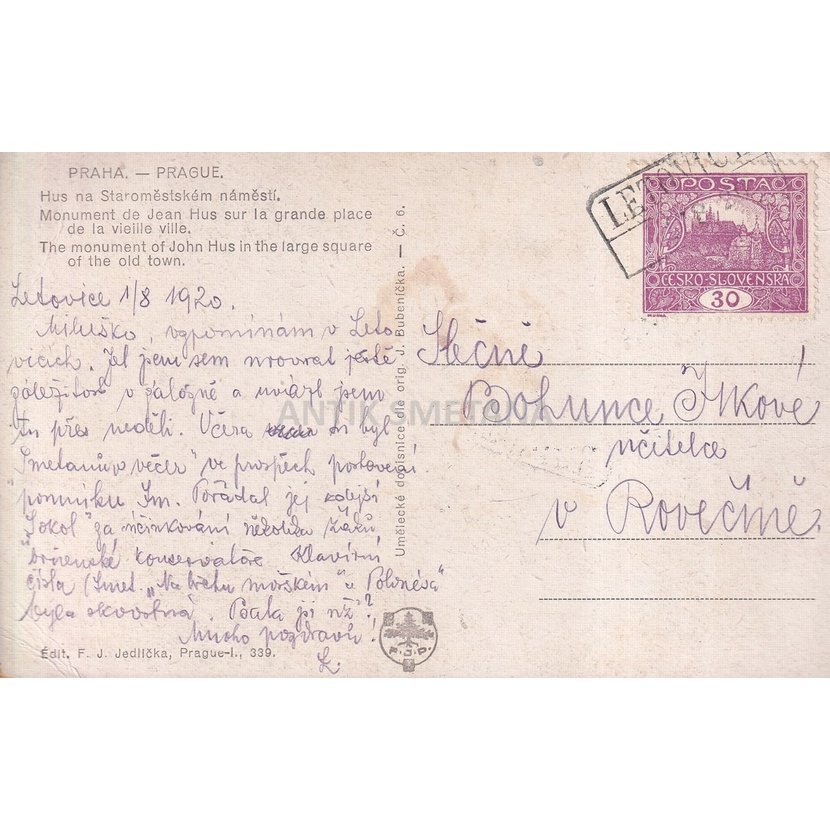 PRAHA. — PRAGUE.
Hus na Staroměstském náměstí.
Monument de Jean Hus sur la grande place
de la vieille ville.
The monument of John Hus in the large square
of the old town.
Letovice 1/8 1920.
Miluško, vzpomínám v Leto
vicích. Jel jsem sem ještě
záležitost v záložně a uvázl jsem
tu přes neděli. Včera tu byl
"Smetanův večer" ve prospěch postavení
pomníku Sm. Pořádal jej zdejší
"Sokol" za účinkování několika žáků
brněnské konservatoře. Klavírní
čísla (Smet. "Na břehu mořském" a Polonésa"
byla skvostná.
Mnoho pozdravů!
Z.
Edit. F. J. Jedlička, Prague-I., 339.
Umělecké dopisnice dle orig. J. Bubeníčka. — Č. 6.
F. J. P.
LETOVICE
POSTA
ČESKO-SLOVENSKA
30
MUCHA
Slečně
Bohunce Jílkové
učitelce
v Rovečíně
ANTIK SMETANA